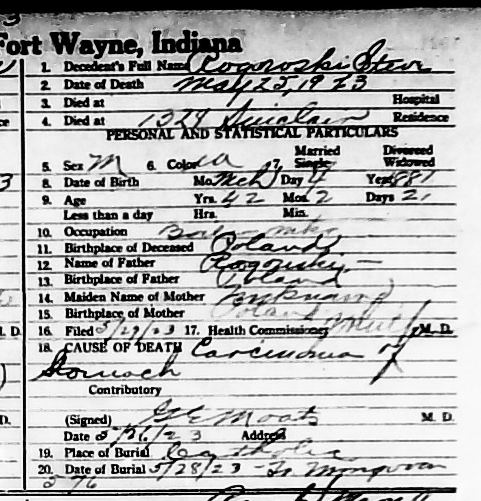 Fort Wayne, Indiana
1. Decedent's Full Name Rogoroski Stove
2. Date of Death May 25, 1923
3. Died at Hospital
4. Died at 1329 Sinclair Residence
PERSONAL AND STATISTICAL PARTICULARS
Married Divorced
5. Sex M 6. Color W 7. Single Widowed
8. Date of Birth Mo. Mch Day 4 Year 1881
9. Age Yrs. 42 Mos. 2 Days 21
Less than a day Hrs. Min.
10. Occupation
11. Birthplace of Deceased Poland
12. Name of Father Rogorski
13. Birthplace of Father Poland
14. Maiden Name of Mother Unknown
15. Birthplace of Mother Poland
16. Filed 5/29/23 17. Health Commissioner M. D.
18. CAUSE OF DEATH Carcinoma of
Stomach
Contributory
(Signed) Moats M. D.
Date 5/26/23 Address
19. Place of Burial Catholic
20. Date of Burial 5/28/23
576